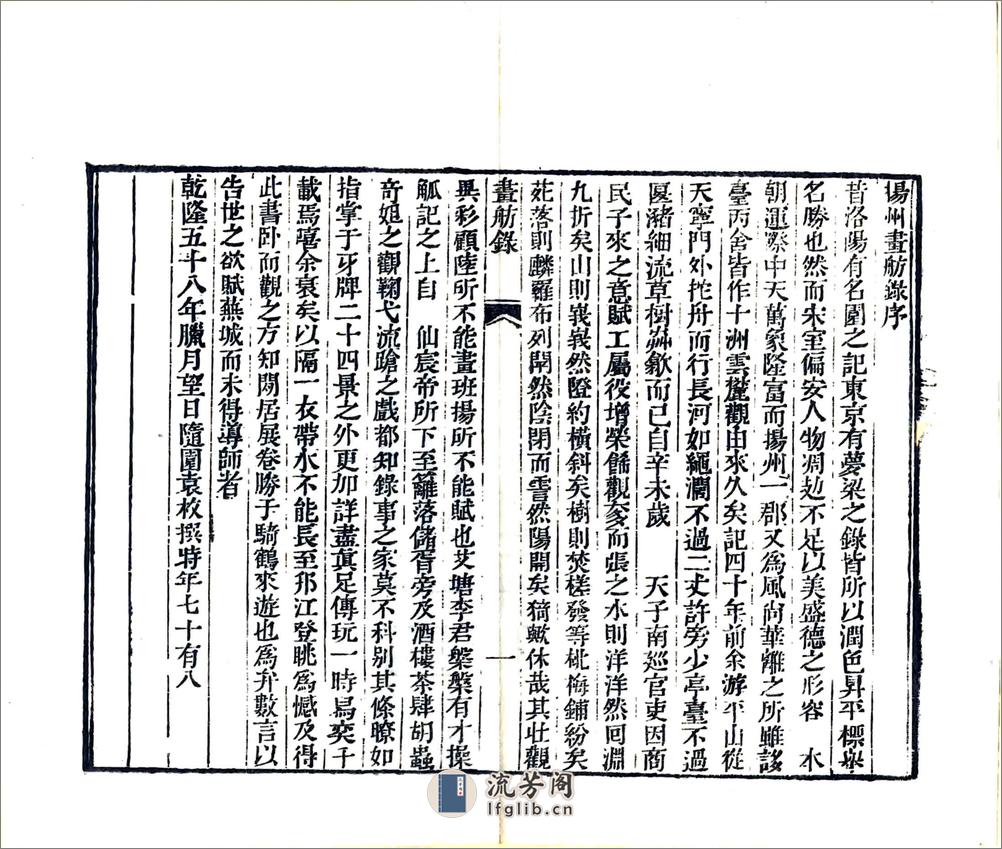 揚州畫舫錄序
昔洛陽有名園之記東京有夢梁之錄皆所以潤色昇平標舉
名勝也然而宋室偏安人物凋攰不足以美盛德之形容　本
朝運際中天萬象隆富而揚州一郡又爲風尚華離之所雖誃
臺丙舍皆作十洲雲麓觀由來久矣記四十年前余游平山從
天寧門外拕舟而行長河如繩濶不過二丈許旁少亭臺不過
匽潴細流草樹歙而已自辛未歲　天子南巡官吏因商
民子來之意賦工屬役增榮飾觀奓而張之水則洋洋然回淵
九折矣山則峩峩然隥約橫斜矣樹則焚槎發等桃梅鋪紛矣
苑落則麟羅布列閛然陰閉而霅然陽開矣猗歟休哉其壯觀
畫舫錄
一
異彩顧陸所不能畫班揚所不能賦也艾塘李君槃槃有才操
觚記之上自　仙宸帝所下至籬落儲胥旁及酒樓茶肆胡蟲
奇妲之觀鞠弋流蹌之戲都知錄事之家莫不科别其條暸如
指掌于牙牌二十四景之外更加詳盡眞足傳玩一時舄奕千
載焉嘻余衰矣以隔一衣帶水不能長至邗江登眺爲憾及得
此書卧而觀之方知閒居展卷勝于騎鶴來遊也爲弁數言以
告世之欲賦蕪城而未得導師者
乾隆五十八年臘月望日隨園袁枚撰時年七十有八
流芳阁
lfglib.cn